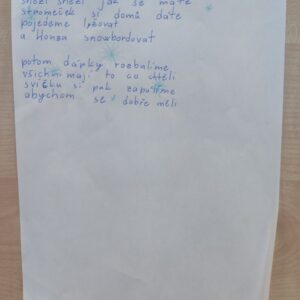 sněží sněží jak se máte
stromeček si domů dáte
pojedeme lyžovat
a Honza snowbordovat
potom dárky rozbalíme
všichni mají to co chtěli
svíčku si pak zapálíme
abychom se dobře měli